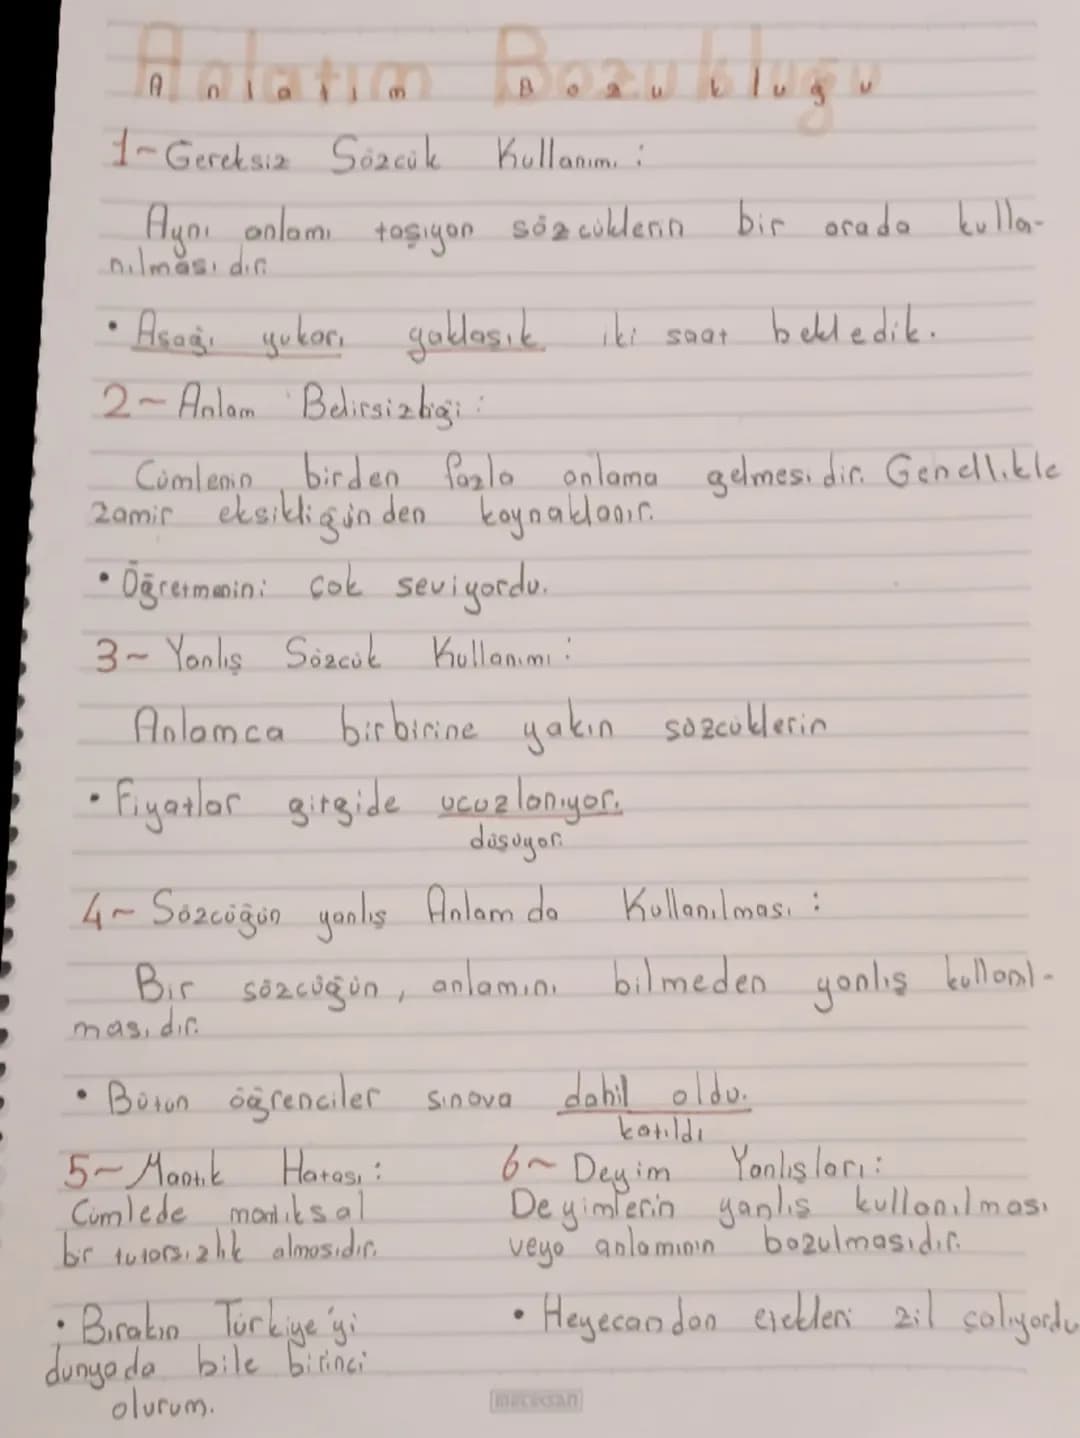 Anlatım Bozukluğu
1~ Gereksiz Sözcük Kullanımı :
Aynı anlamı taşıyan sözcüklerin bir arada kulla-
nılmasıdır.
• Aşağı yukarı yaklaşık iki saat bekledik.
2~ Anlam Belirsizliği :
Cümlenin birden fazla anlama gelmesidir. Genellikle
zamir eksikliğinden kaynaklanır.
• Öğretmenini çok seviyordu.
3~ Yanlış Sözcük Kullanımı :
Anlamca birbirine yakın sözcüklerin
• Fiyatlar gitgide ucuzlanıyor.
düşüyor.
4~ Sözcüğün yanlış Anlamda Kullanılması :
Bir sözcüğün, anlamını bilmeden yanlış kullanıl-
masıdır.
• Bütün öğrenciler sınava dahil oldu.
katıldı
5~ Mantık Hatası :
Cümlede mantıksal
bir tutarsızlık olmasıdır.
• Bırakın Türkiye'yi
dünyada bile birinci
olurum.
6~ Deyim Yanlışları :
Deyimlerin yanlış kullanılması
veya anlamının bozulmasıdır.
• Heyecandan etekleri zil çalıyordu